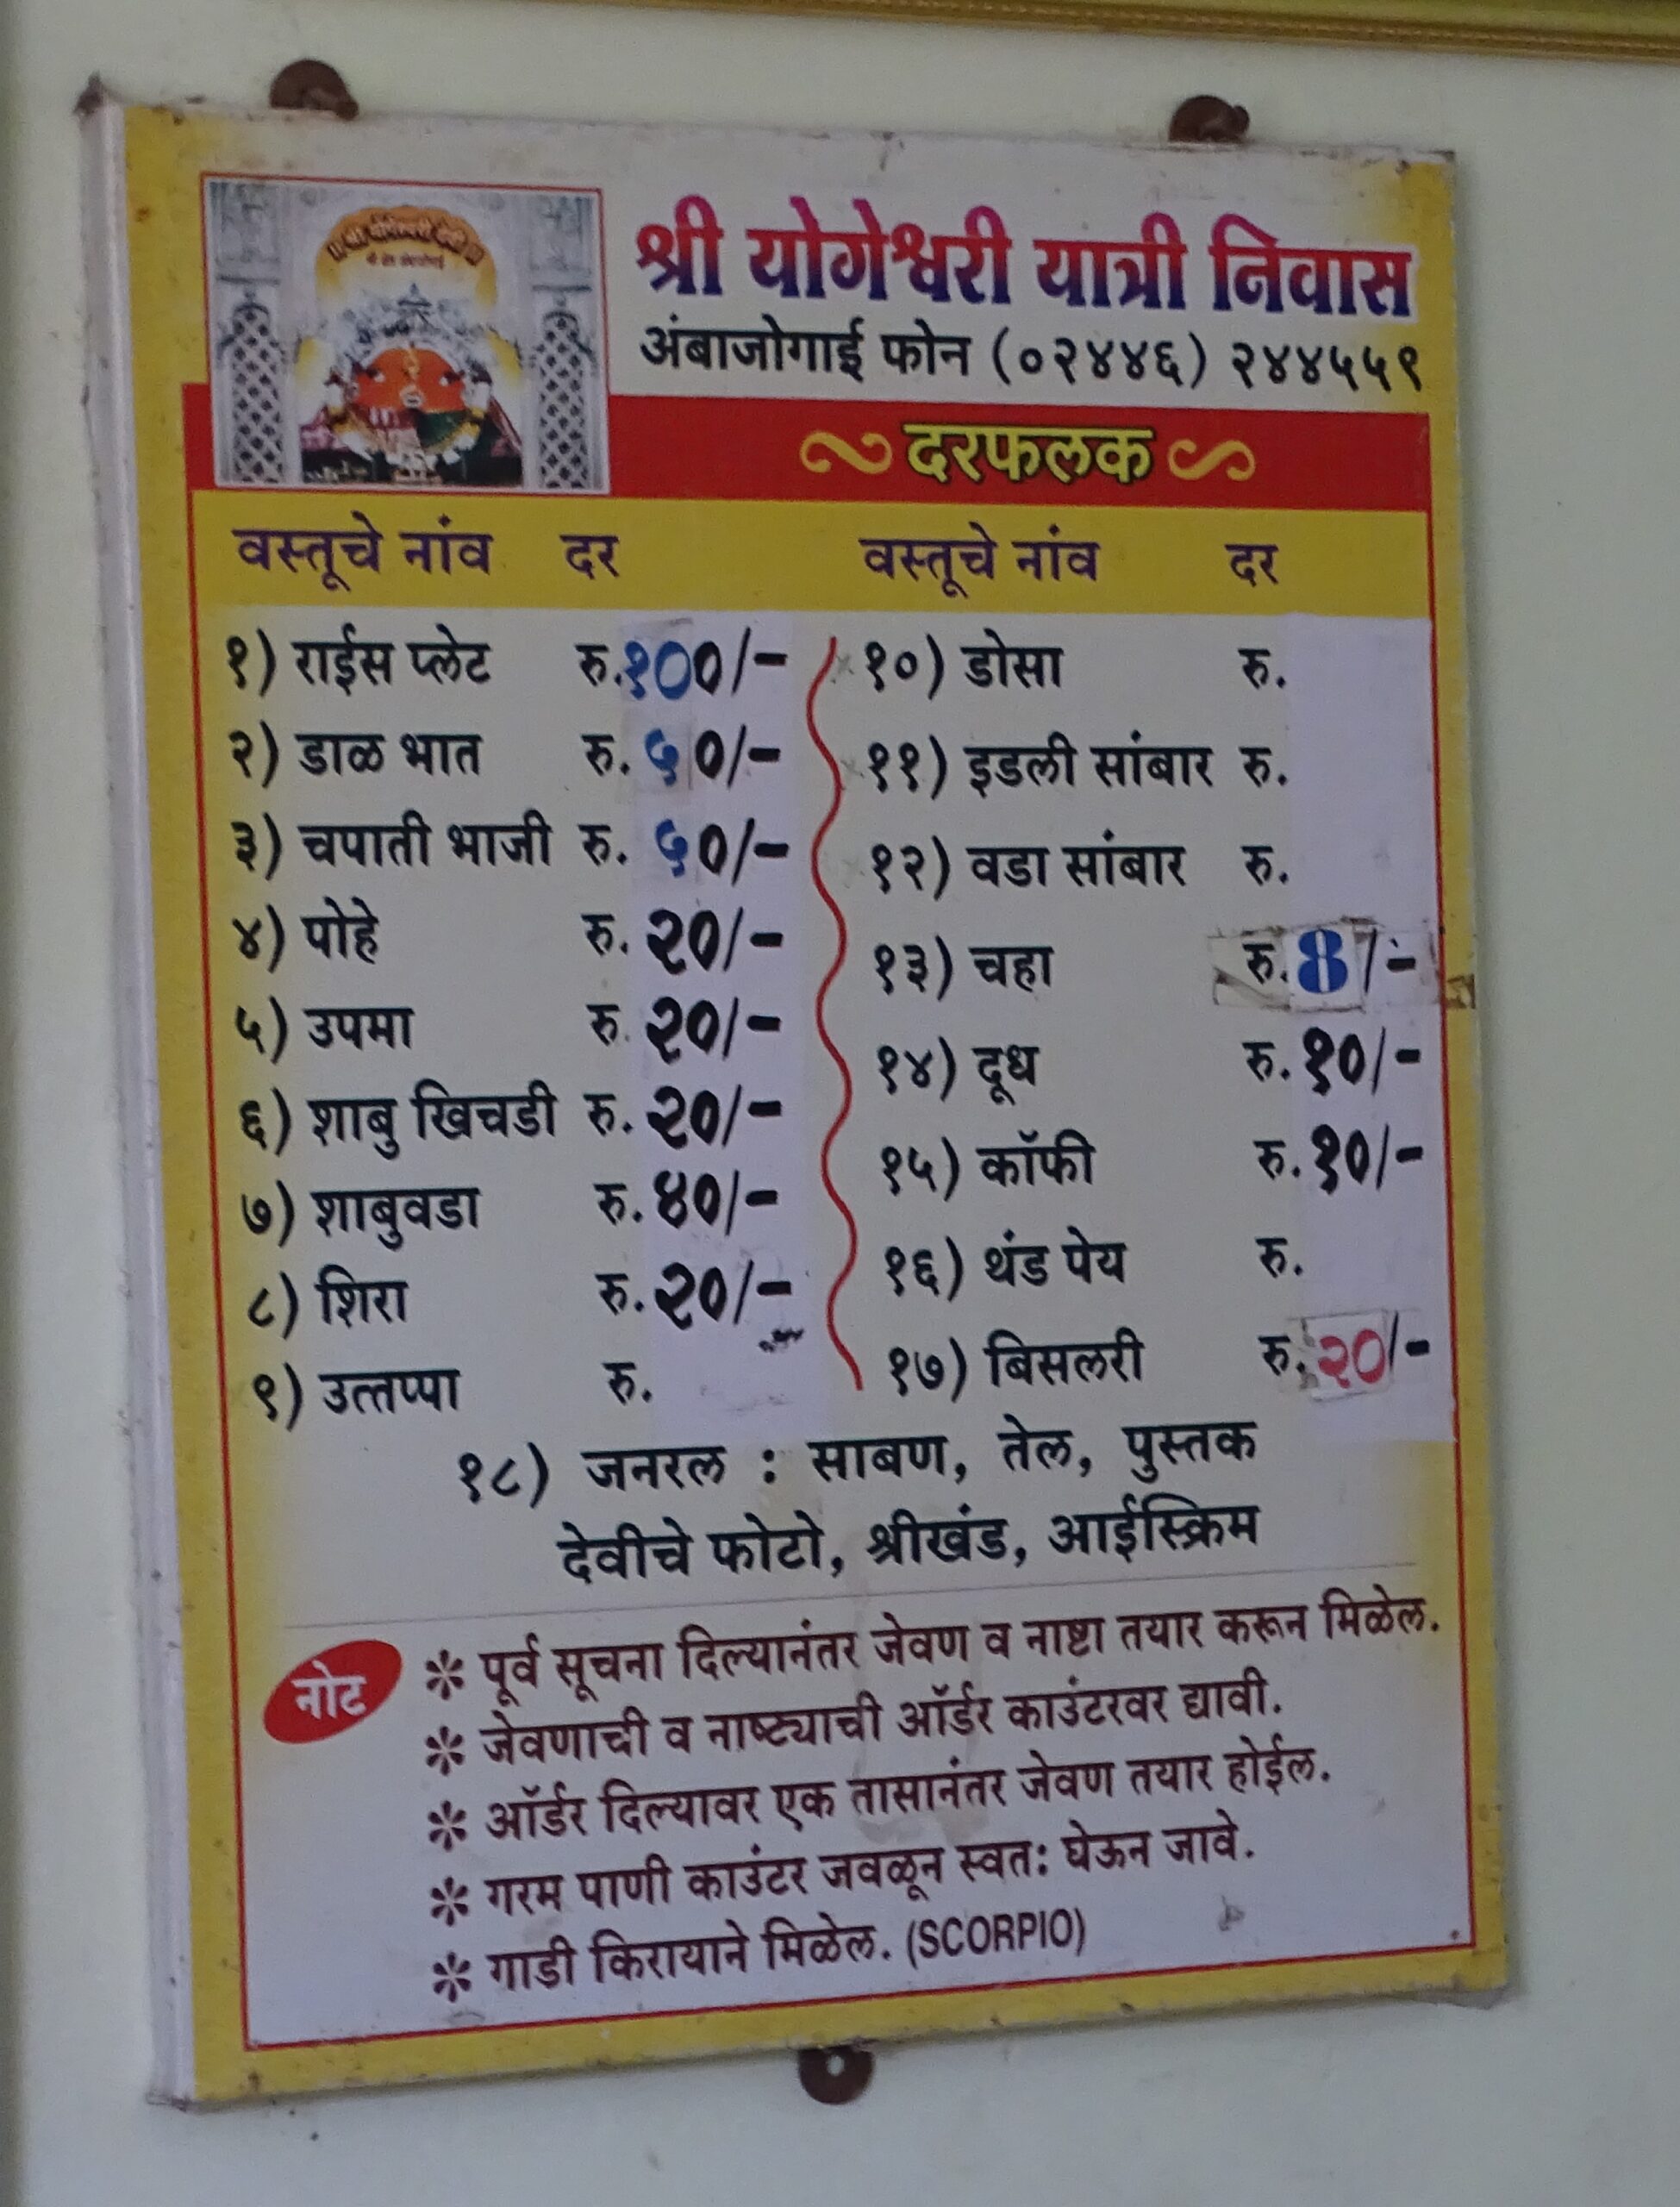 श्री योगेश्वरी यात्री निवास
अंबाजोगाई फोन (०२४४६) २४४५५९
दरफलक
वस्तूचे नांव दर वस्तूचे नांव दर
१) राईस प्लेट रु.१००/-
२) डाळ भात रु. ५०/-
३) चपाती भाजी रु. ५०/-
४) पोहे रु. २०/-
५) उपमा रु. २०/-
६) शाबु खिचडी रु. २०/-
७) शाबुवडा रु. ४०/-
८) शिरा रु. २०/-
९) उत्तप्पा रु.
१०) डोसा रु.
११) इडली सांबार रु.
१२) वडा सांबार रु.
१३) चहा रु. 8/-
१४) दूध रु. १०/-
१५) कॉफी रु. १०/-
१६) थंड पेय रु.
१७) बिसलरी रु. २०/-
१८) जनरल : साबण, तेल, पुस्तक
देवीचे फोटो, श्रीखंड, आईस्क्रिम
नोट
* पूर्व सूचना दिल्यानंतर जेवण व नाष्टा तयार करून मिळेल.
* जेवणाची व नाष्ट्याची ऑर्डर काउंटरवर द्यावी.
* ऑर्डर दिल्यावर एक तासानंतर जेवण तयार होईल.
* गरम पाणी काउंटर जवळून स्वतः घेऊन जावे.
* गाडी किरायाने मिळेल. (SCORPIO)